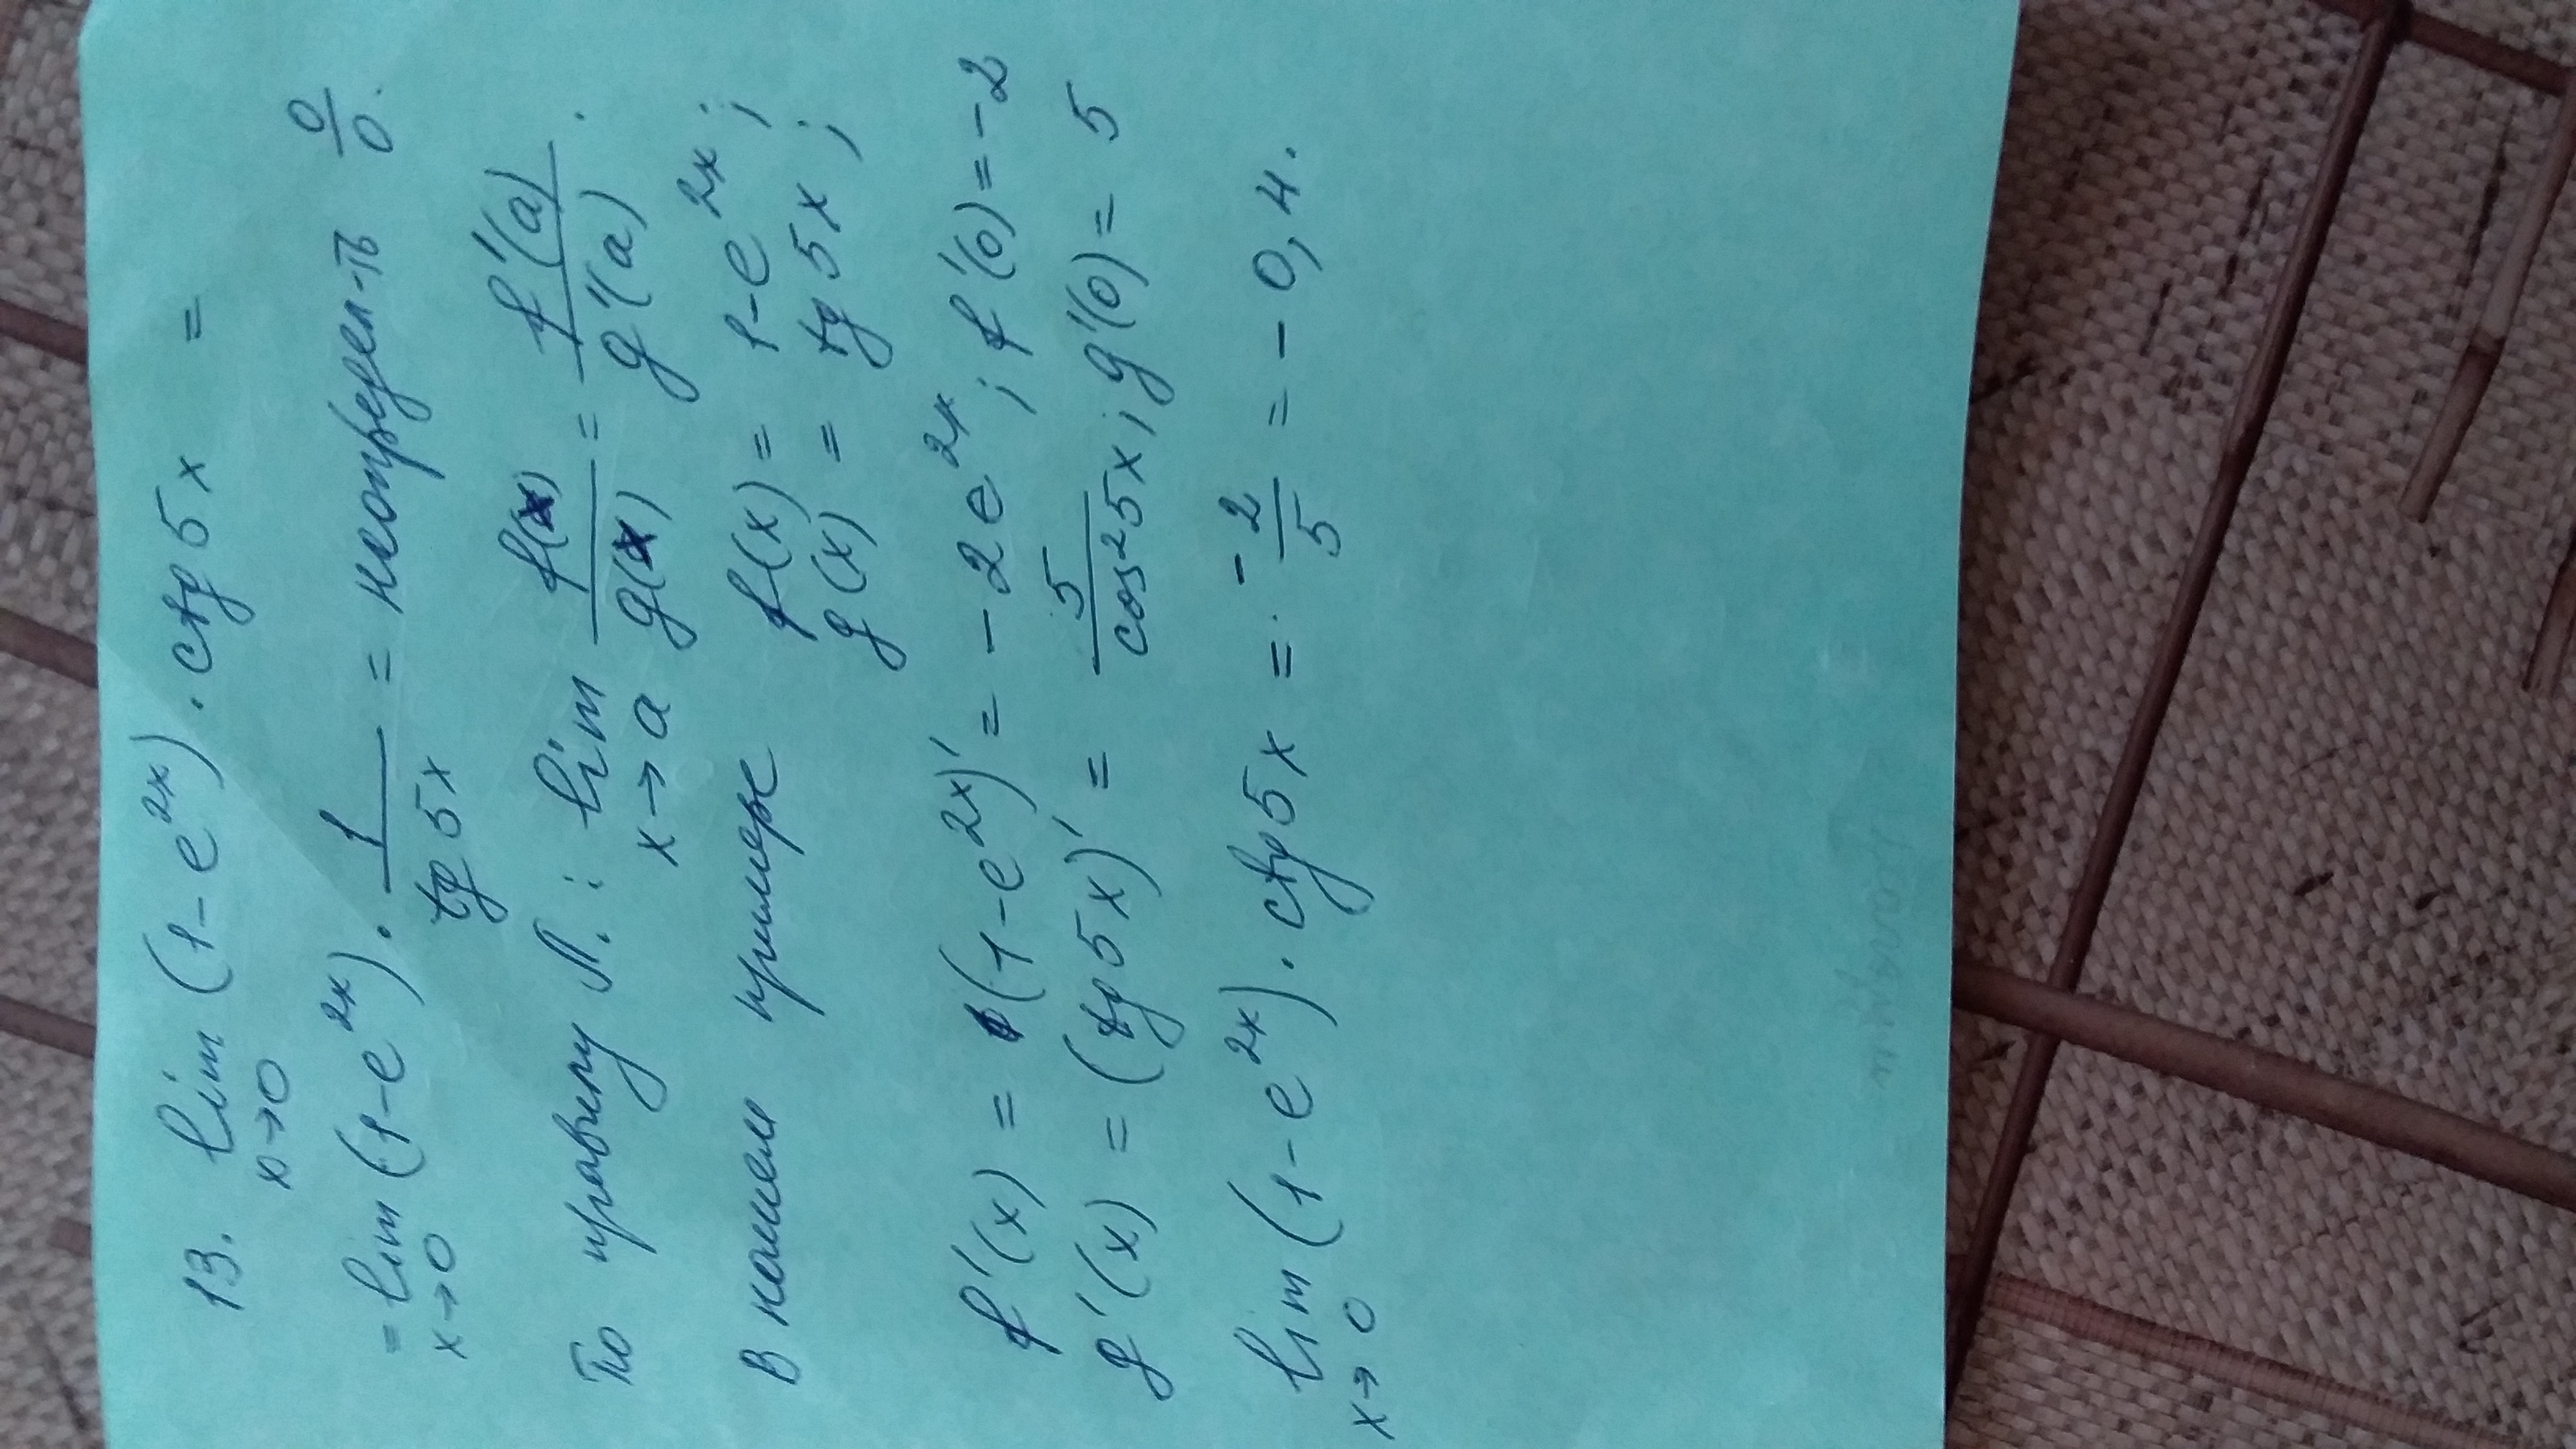 13. lim (1-e^2x) · ctg 5x =
x→0
= lim (1-e^2x) · 1/tg 5x = неопредел-ть 0/0.
x→0
По правилу Л.: lim f(x)/g(x) = f'(a)/g'(a).
x→a
В нашем примере f(x) = 1-e^2x;
g(x) = tg 5x;
f'(x) = (1-e^2x)' = -2e^2x; f'(0) = -2
g'(x) = (tg 5x)' = 5/cos²5x; g'(0) = 5
lim (1-e^2x) · ctg 5x = -2/5 = -0,4.
x→0